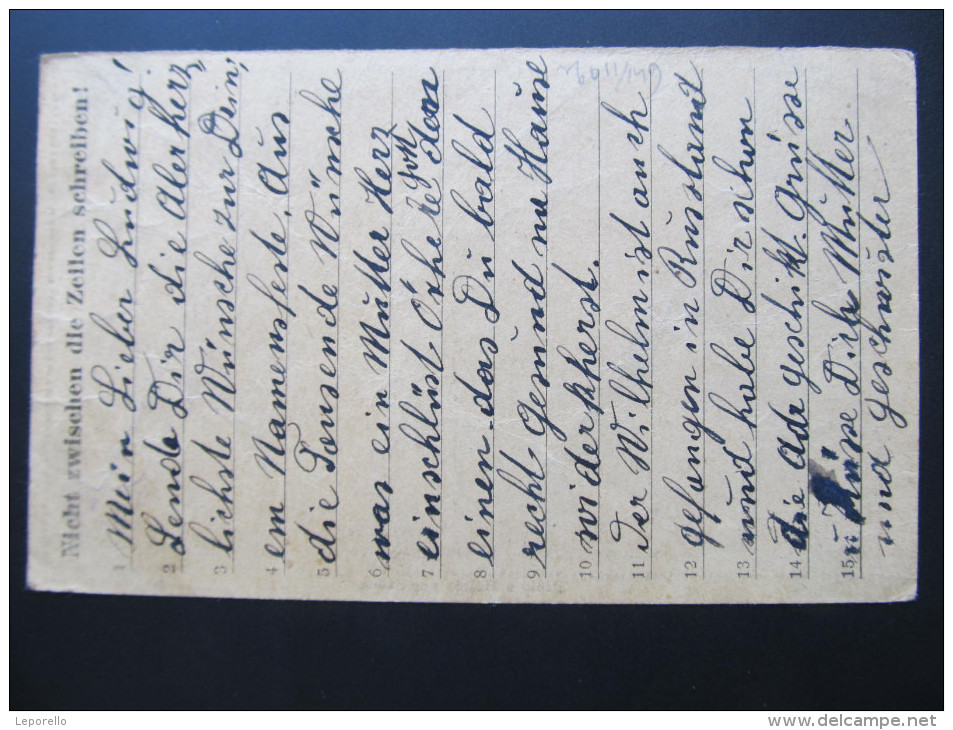 Nicht zwischen die Zeilen schreiben!
1 Mein Lieber Ludwig!
2 Sende Dir die Alerherz„
3 lichste Wünsche zur Dein,
4 en Namensfeste. Aus
5 die Tausende Wünsche
6 was ein Mutter Herz
7 einschlüst Gott
8 einen. das Du bald
9 recht Gesund na Hause
10 widerkherst.
11 Der Wilhelm ist auch
12 gefangen in Russland
13 und habe Dir schon
14 die Adr geschikt. Grüsse
15 u Küsse Dich Mutter
und geschwister
Leporello
www.delcampe.net